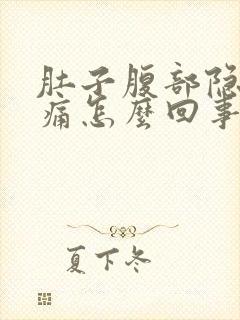 肚子腹部隐
痛怎麼回事
夏下冬